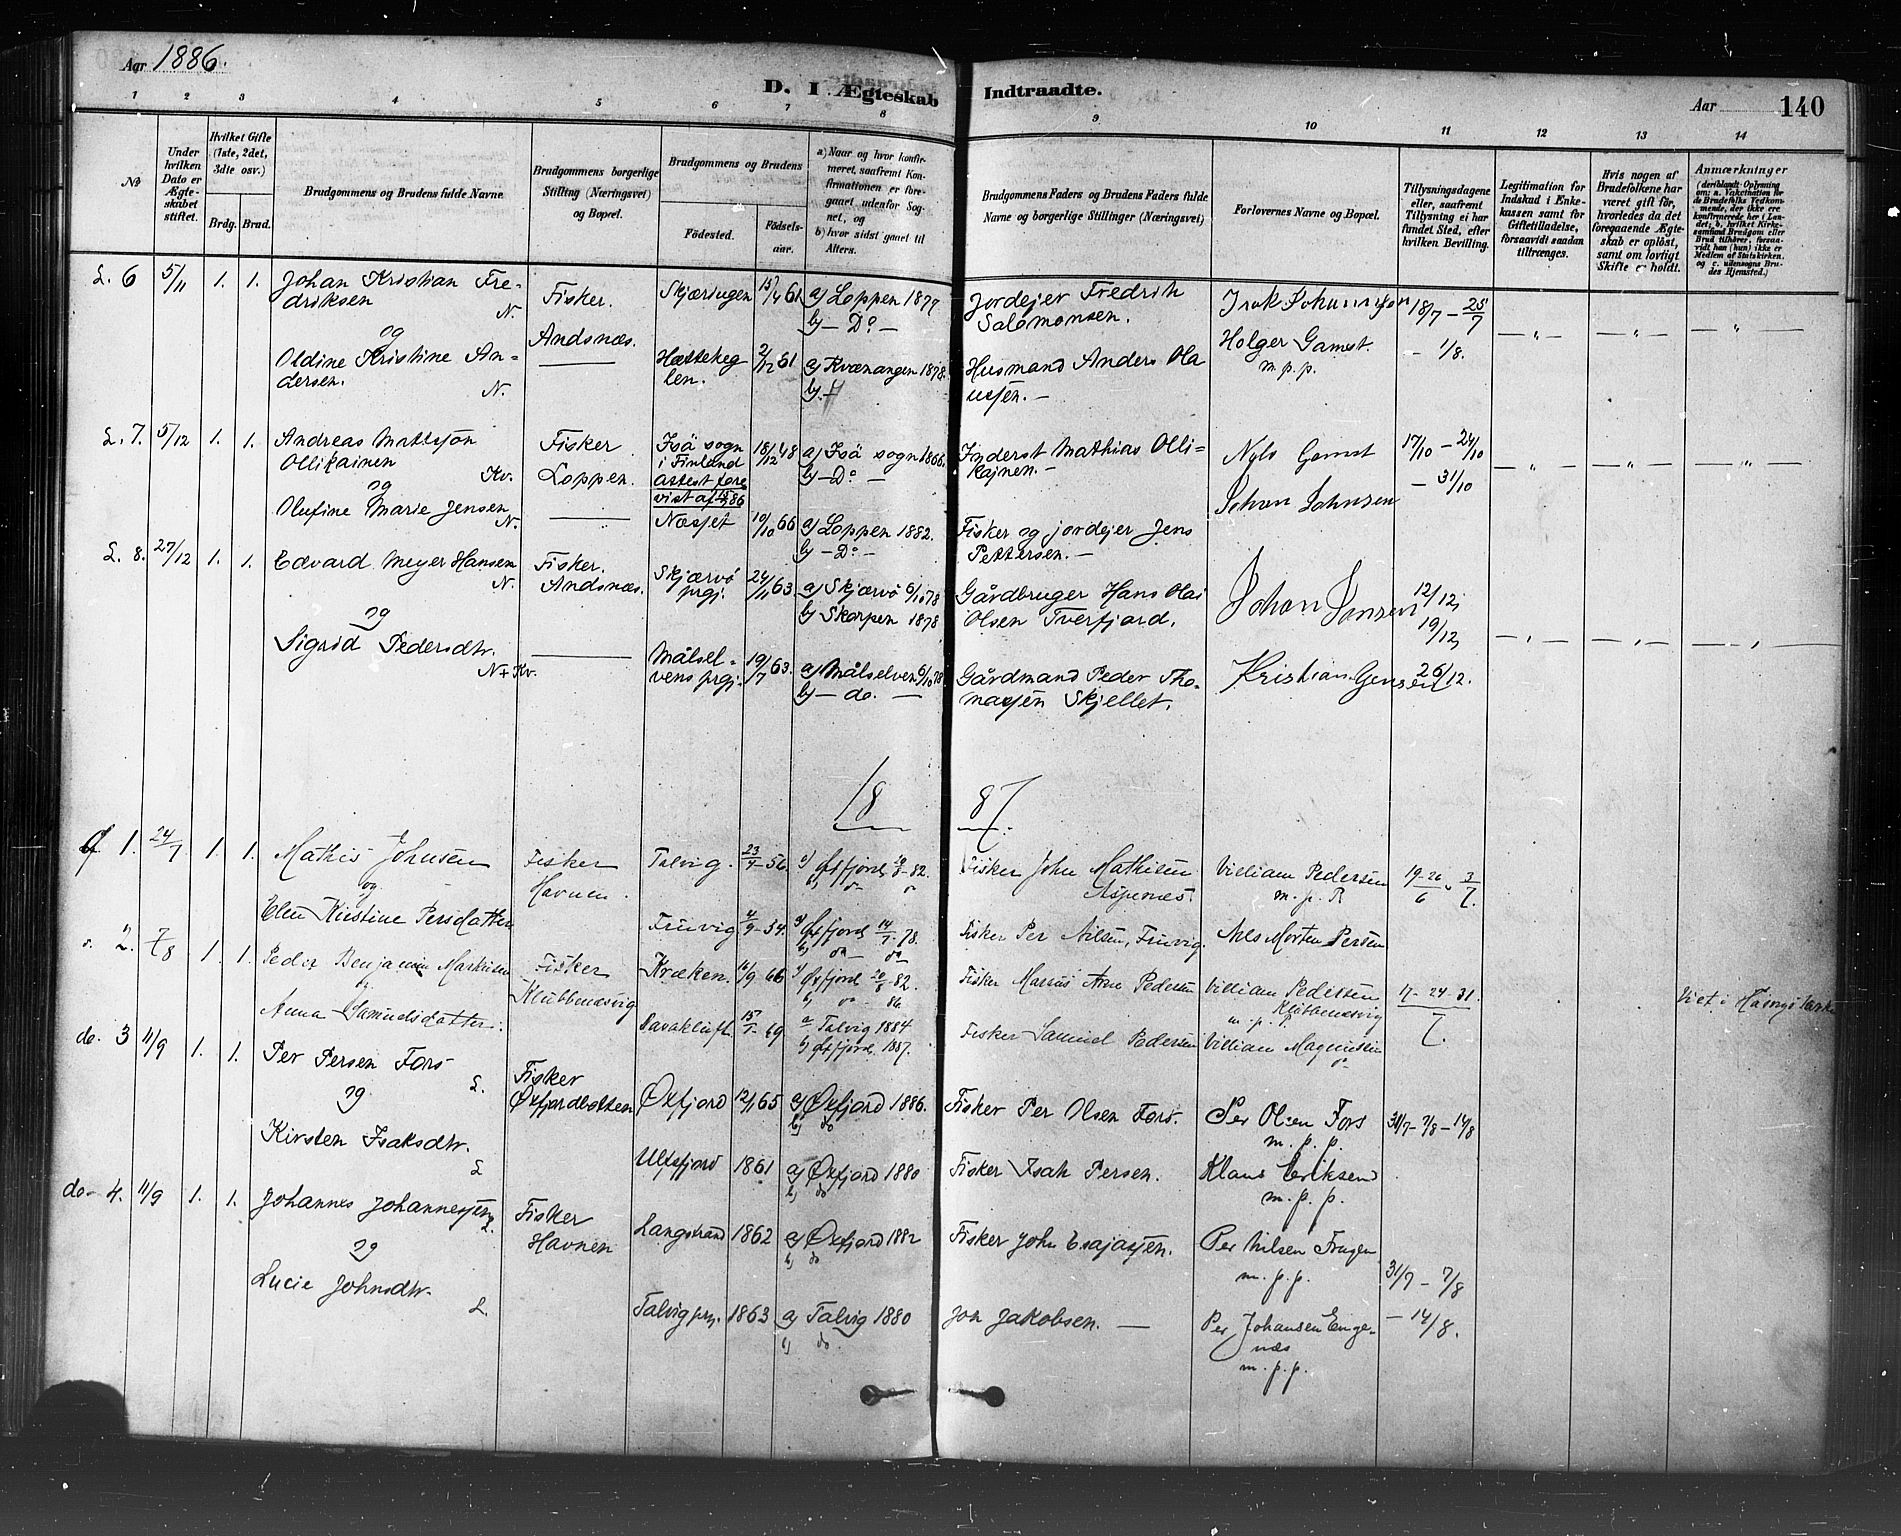 Aar 1886.
D. I Ægteskab Indtraadte.
Aar 140
1 2 3 4 5 6 7 8 9 10 11 12 13 14
No
Under hvilken Dato er Ægteskabet stiftet.
Hvilket Gifte (1ste, 2det, 3dte osv.)
Brdg. Brud.
Brudgommens og Brudens fulde Navne
Brudgommens borgerlige Stilling (Næringsvei) og Bopæl.
Brudgommens og Brudens
Fødested.
Fødselsaar.
a) Naar og hvor konfirmeret, saafremt Konfirmationen er foregaaet udenfor Sognet, og
b) hvor sidst gaaet til Alters.
Brudgommens Faders og Brudens Faders fulde Navne og borgerlige Stillinger (Næringsvei)
Forlovernes Navne og Bopæl.
Tillysningsdagene eller, saafremt Tillysning ei har fundet Sted, efter hvilken Bevilling.
Legitimation for Indskad i Enkekassen samt for Giftetilladelse, forsaavidt saadan tiltrænges.
Hvis nogen af Brudefolkene har været gift før, hvorledes da det foregaaende Ægteskab er opløst, samt om lovligt Skifte er holdt.
Anmærkninger
(deriblandt Oplysning om: a. Vakcination for de Brudefolks Vedkommende, der ikke ere konfirmerede her i Landet; b. hvilket Kirkesamfund Brudgom eller Brud tilhører, forsaavidt han (hun) ikke er Medlem af Statskirken. og c. udensogns Brudes Hjemsted.)
L. 6 5/11 1. 1. Johan Kristian Fredriksen N. Fisker. Andsnæs. Skjæringen 15/4 61 a) Loppen 1877 b) — Do — Jordejer Fredrik Salomonsen. Isak Johannesen 18/7 — 25/7 — " — — " — — " —
og
Oldine Kristine Andersen. N. — Hættekeglen. 2/12 61 a) Kvænangen 1878. b) — Husmand Anders Olaussen. — Holger Gamst. m. p. p. — 1/8.
L. 7. 5/12 1. 1. Andreas Mattsson Ollikainen Kv. Fisker Loppen. Isö sogn i Finland attest forevist af 86 18/12 48 a) Isö sogn 1866. b) — Do — Inderst Mathias Ollikajnen. — Nils Gamst 17/10 — 24/10 — 31/10 — " — — " — — " —
og
Olufine Marie Jensen N. — Næsset 10/10 66 a) Loppen 1882. b) — Do — Fisker og jordejer Jens Pettersen. — Johan Johnsen
L. 8. 27/12 1. 1. Edvard Meyer Hansen N. Fisker. Andsnæs. Skjærvö prgj. 24/11 63. a) Skjærvö 6/10 78 b) Skorpen 1878 Gårdbruger Hans Olai Olsen Tverfjord. Johan Jensen 12/12; 19/12; — " — — " — — " —
og
Sigrid Pedersdtr. N+Kv. — Målselvens prgj. 19/7 63. a) Målselven 6/10 78 b) — do. — Gårdmand Peder Thomassen Skjellet. Kristian Jensen 26/12.
18 87.
Øf 1. 24/7 1. 1. Mathis Johnsen Fisker Havnen. Talvig. 23/4 - 56. a) Øxfjord 20/8 - 82. b) do Fisker John Mathisen Aspenes. Villiam Pedersen m. p. P. 19-26/6, 3/7.
og
Elen Kirstine Persdatter Fruvig 4/9 - 54. a) Øxfjord 14/7 - 78. b) do Fisker Per Nilsen, Fruvig. Nils Morten Persen
" 2. 7/8 1. 1. Peder Benjamin Markusen Fisker Klubbenæsvig Kræken. 16/9 66 a) Øxfjord 20/8 - 82. b) do - 86. Fisker Marcus Arne Pedersen Villiam Pedersen Klubbenesvig m. p. P. 17-24-31/7. Viet i Kirke
og
Anna Samuelsdatter. 15/1 - 69 a) Talvig 1884 b) Øxfjord, 1887. Fisker Samuel Pedersen Villiam Magnussen do
do. 3 11/9 1. 1. Per Persen Fors L. Fisker Øxfjordbotten Øxfjord 12/11 65 a) Øxfjord 1886. b) do Fisker Per Olsen Fors. Per Olsen Fors m. p. p. 31/7 - 7/8 - 14/8
og
Kirsten Isaksdtr. L Ulfsfjord 1861 a) Øxfjord 1880 b) do Fisker Isak Persen. Klaus Eriksen m. p. p.
do — 4. 11/9 1. 1. Johannes Johannessen L. Fisker Havnen Langstrand 1862 a) Øxfjord 1882 b) do Fisker John Esajassen. Per Nilsen m. p. p. 31/7 — 7/8
og
Lucie Johnsdtr. L. Talvig prgj. 1863 a) Talvig 1880 b) do. Jon Jakobsen. — Per Johansen Engenæs m. p. p. — 14/8.